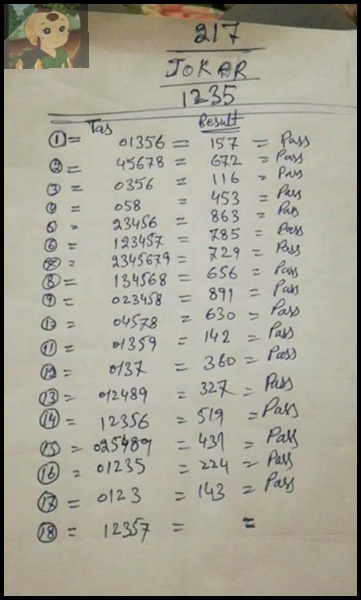 217
JOKAR
1235
Tas Result
1 = 01356 = 157 = Pass
2 = 45678 = 672 = Pass
3 = 0356 = 116 = Pass
4 = 058 = 453 = Pass
5 = 23456 = 863 = Pass
6 = 123457 = 785 = Pass
= 2345679 = 729 = Pass
8 = 134568 = 656 = Pass
9 = 023458 = 891 = Pass
10 = 04578 = 630 = Pass
11 = 01359 = 142 = Pass
12 = 0137 = 360 = Pass
13 = 012489 = 327 = Pass
14 = 12356 = 519 = Pass
15 = 025489 = 431 = Pass
16 = 01235 = 224 = Pass
17 = 0123 = 143 = Pass
18 = 12357 = =